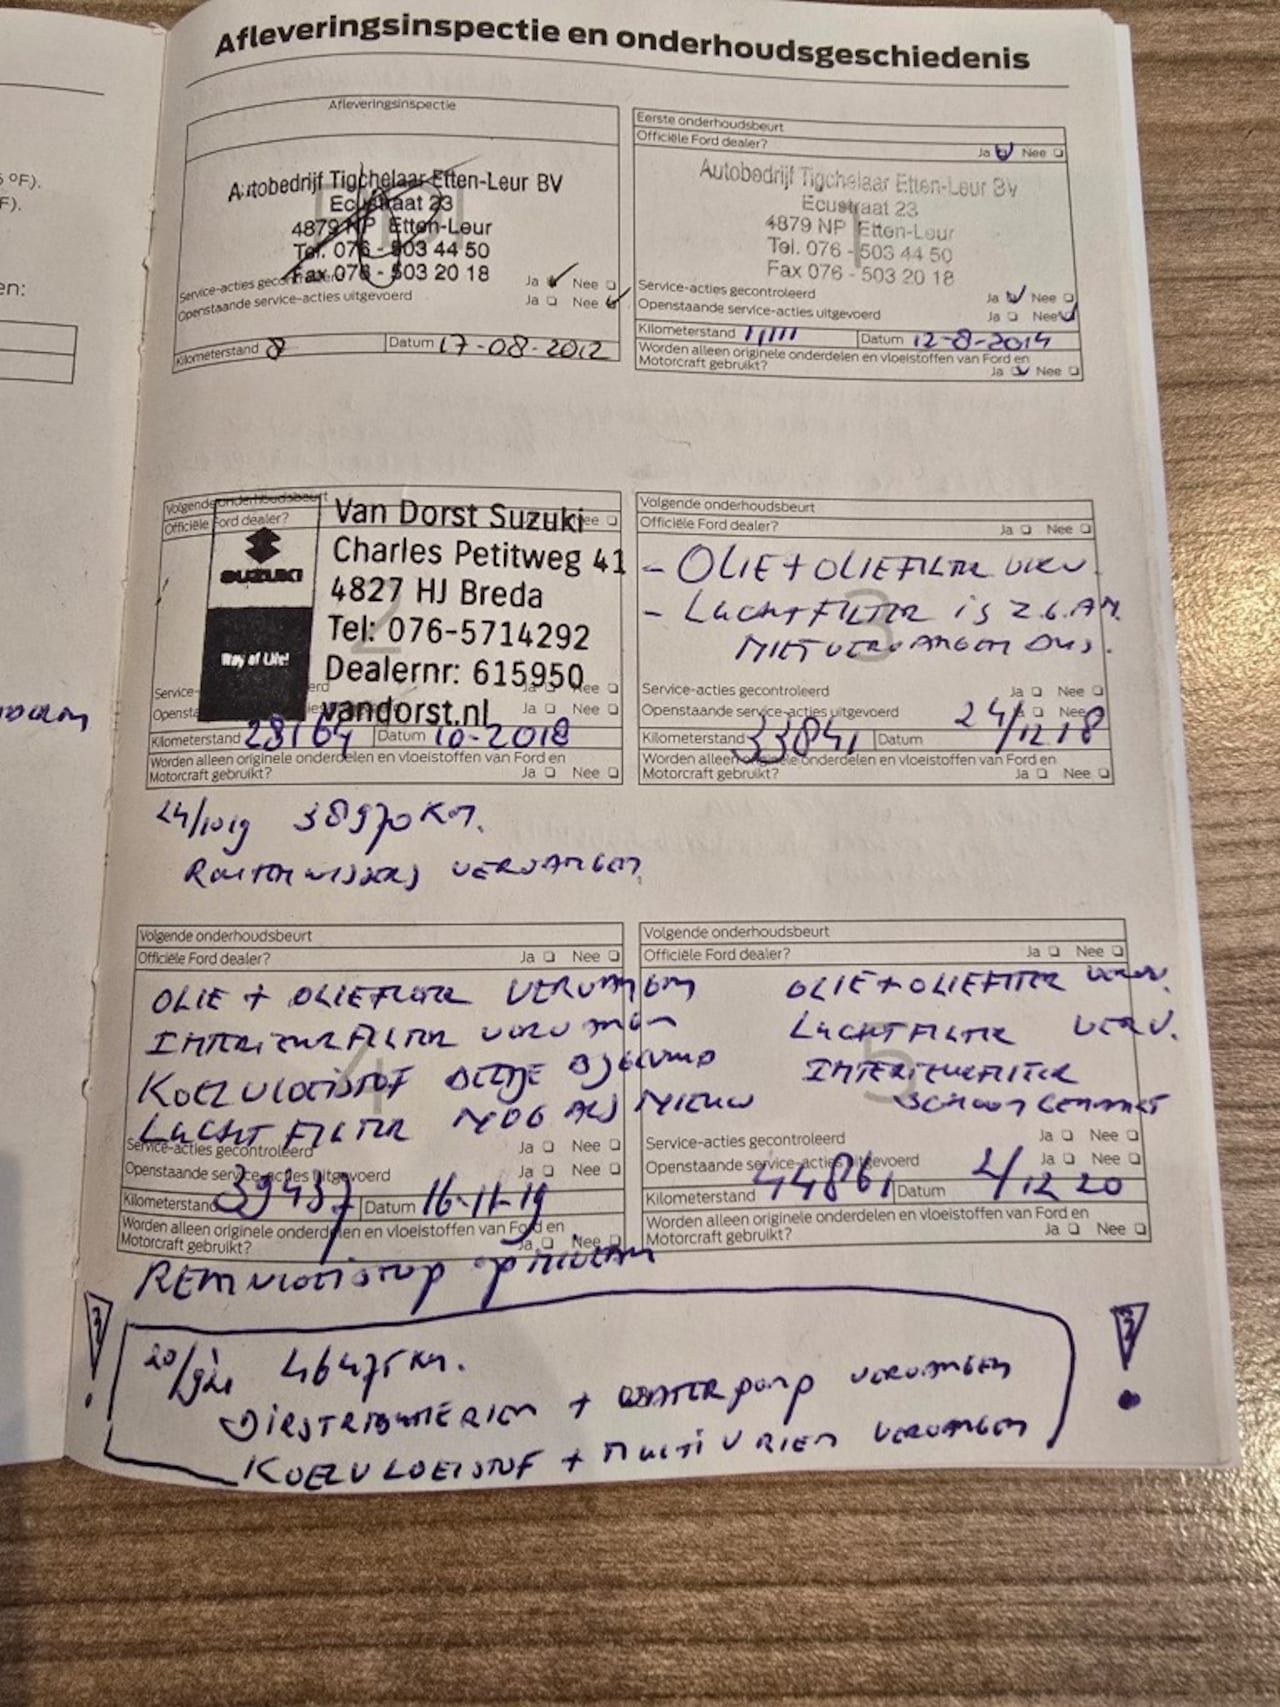 Afleveringsinspectie en onderhoudsgeschiedenis
Afleveringsinspectie
Autobedrijf Tigchelaar Etten-Leur BV
Ecustraat 23
4879 NP Etten-Leur
Tel. 076 - 503 44 50
Fax 076 - 503 20 18
Service-acties gecontroleerd Ja Nee
Openstaande service-acties uitgevoerd Ja Nee
Kilometerstand 8 Datum 17-08-2012
Eerste onderhoudsbeurt
Officiële Ford dealer?
Ja Nee
Autobedrijf Tigchelaar Etten-Leur BV
Ecustraat 23
4879 NP Etten-Leur
Tel. 076 - 503 44 50
Fax 076 - 503 20 18
Service-acties gecontroleerd Ja Nee
Openstaande service-acties uitgevoerd Ja Nee
Kilometerstand Datum 12-8-2014
Worden alleen originele onderdelen en vloeistoffen van Ford en
Motorcraft gebruikt? Ja Nee
Volgende onderhoudsbeurt
Officiële Ford dealer? Nee
SUZUKI
Way of Life!
Van Dorst Suzuki
Charles Petitweg 41
4827 HJ Breda
Tel: 076-5714292
Dealernr: 615950
vandorst.nl
Service- erd Ja Nee
Opensta Ja Nee
Kilometerstand 28164 Datum 10-2018
Worden alleen originele onderdelen en vloeistoffen van Ford en
Motorcraft gebruikt? Ja Nee
Volgende onderhoudsbeurt
Officiële Ford dealer? Ja Nee
- OLIE + OLIEFILTER VERV.
- LUCHTFILTER IS Z.G.A.N.
NIET VERVANGEN DUS.
Service-acties gecontroleerd Ja Nee
Openstaande service-acties uitgevoerd Ja Nee
Kilometerstand 33841 Datum 24/12 18
Worden alleen originele onderdelen en vloeistoffen van Ford en
Motorcraft gebruikt? Ja Nee
24/10 19 38970 KM.
RUITENWISSERS VERVANGEN
Volgende onderhoudsbeurt
Officiële Ford dealer? Ja Nee
OLIE + OLIEFILTER VERVANGEN
INTERIEURFILTER VERVANGEN
KOELVLOEISTOF BEETJE BIJGEVULD
LUCHT FILTER NOG ALS NIEUW
Service-acties gecontroleerd Ja Nee
Openstaande service-acties uitgevoerd Ja Nee
Kilometerstand 39437 Datum 16-11-19
Worden alleen originele onderdelen en vloeistoffen van Ford en
Motorcraft gebruikt? Ja Nee
REMVLOEISTOF
Volgende onderhoudsbeurt
Officiële Ford dealer? Ja Nee
OLIE + OLIEFILTER VERV.
LUCHTFILTER VERV.
INTERIEURFILTER
SCHOONGEMAAKT
Service-acties gecontroleerd Ja Nee
Openstaande service-acties uitgevoerd Ja Nee
Kilometerstand 44861 Datum 2/12 20
Worden alleen originele onderdelen en vloeistoffen van Ford en
Motorcraft gebruikt? Ja Nee
20/9 21 46475 KM.
DISTRIBUTIERIEM + WATERPOMP VERVANGEN
KOELVLOEISTOF + MULTIVRIEM VERVANGEN